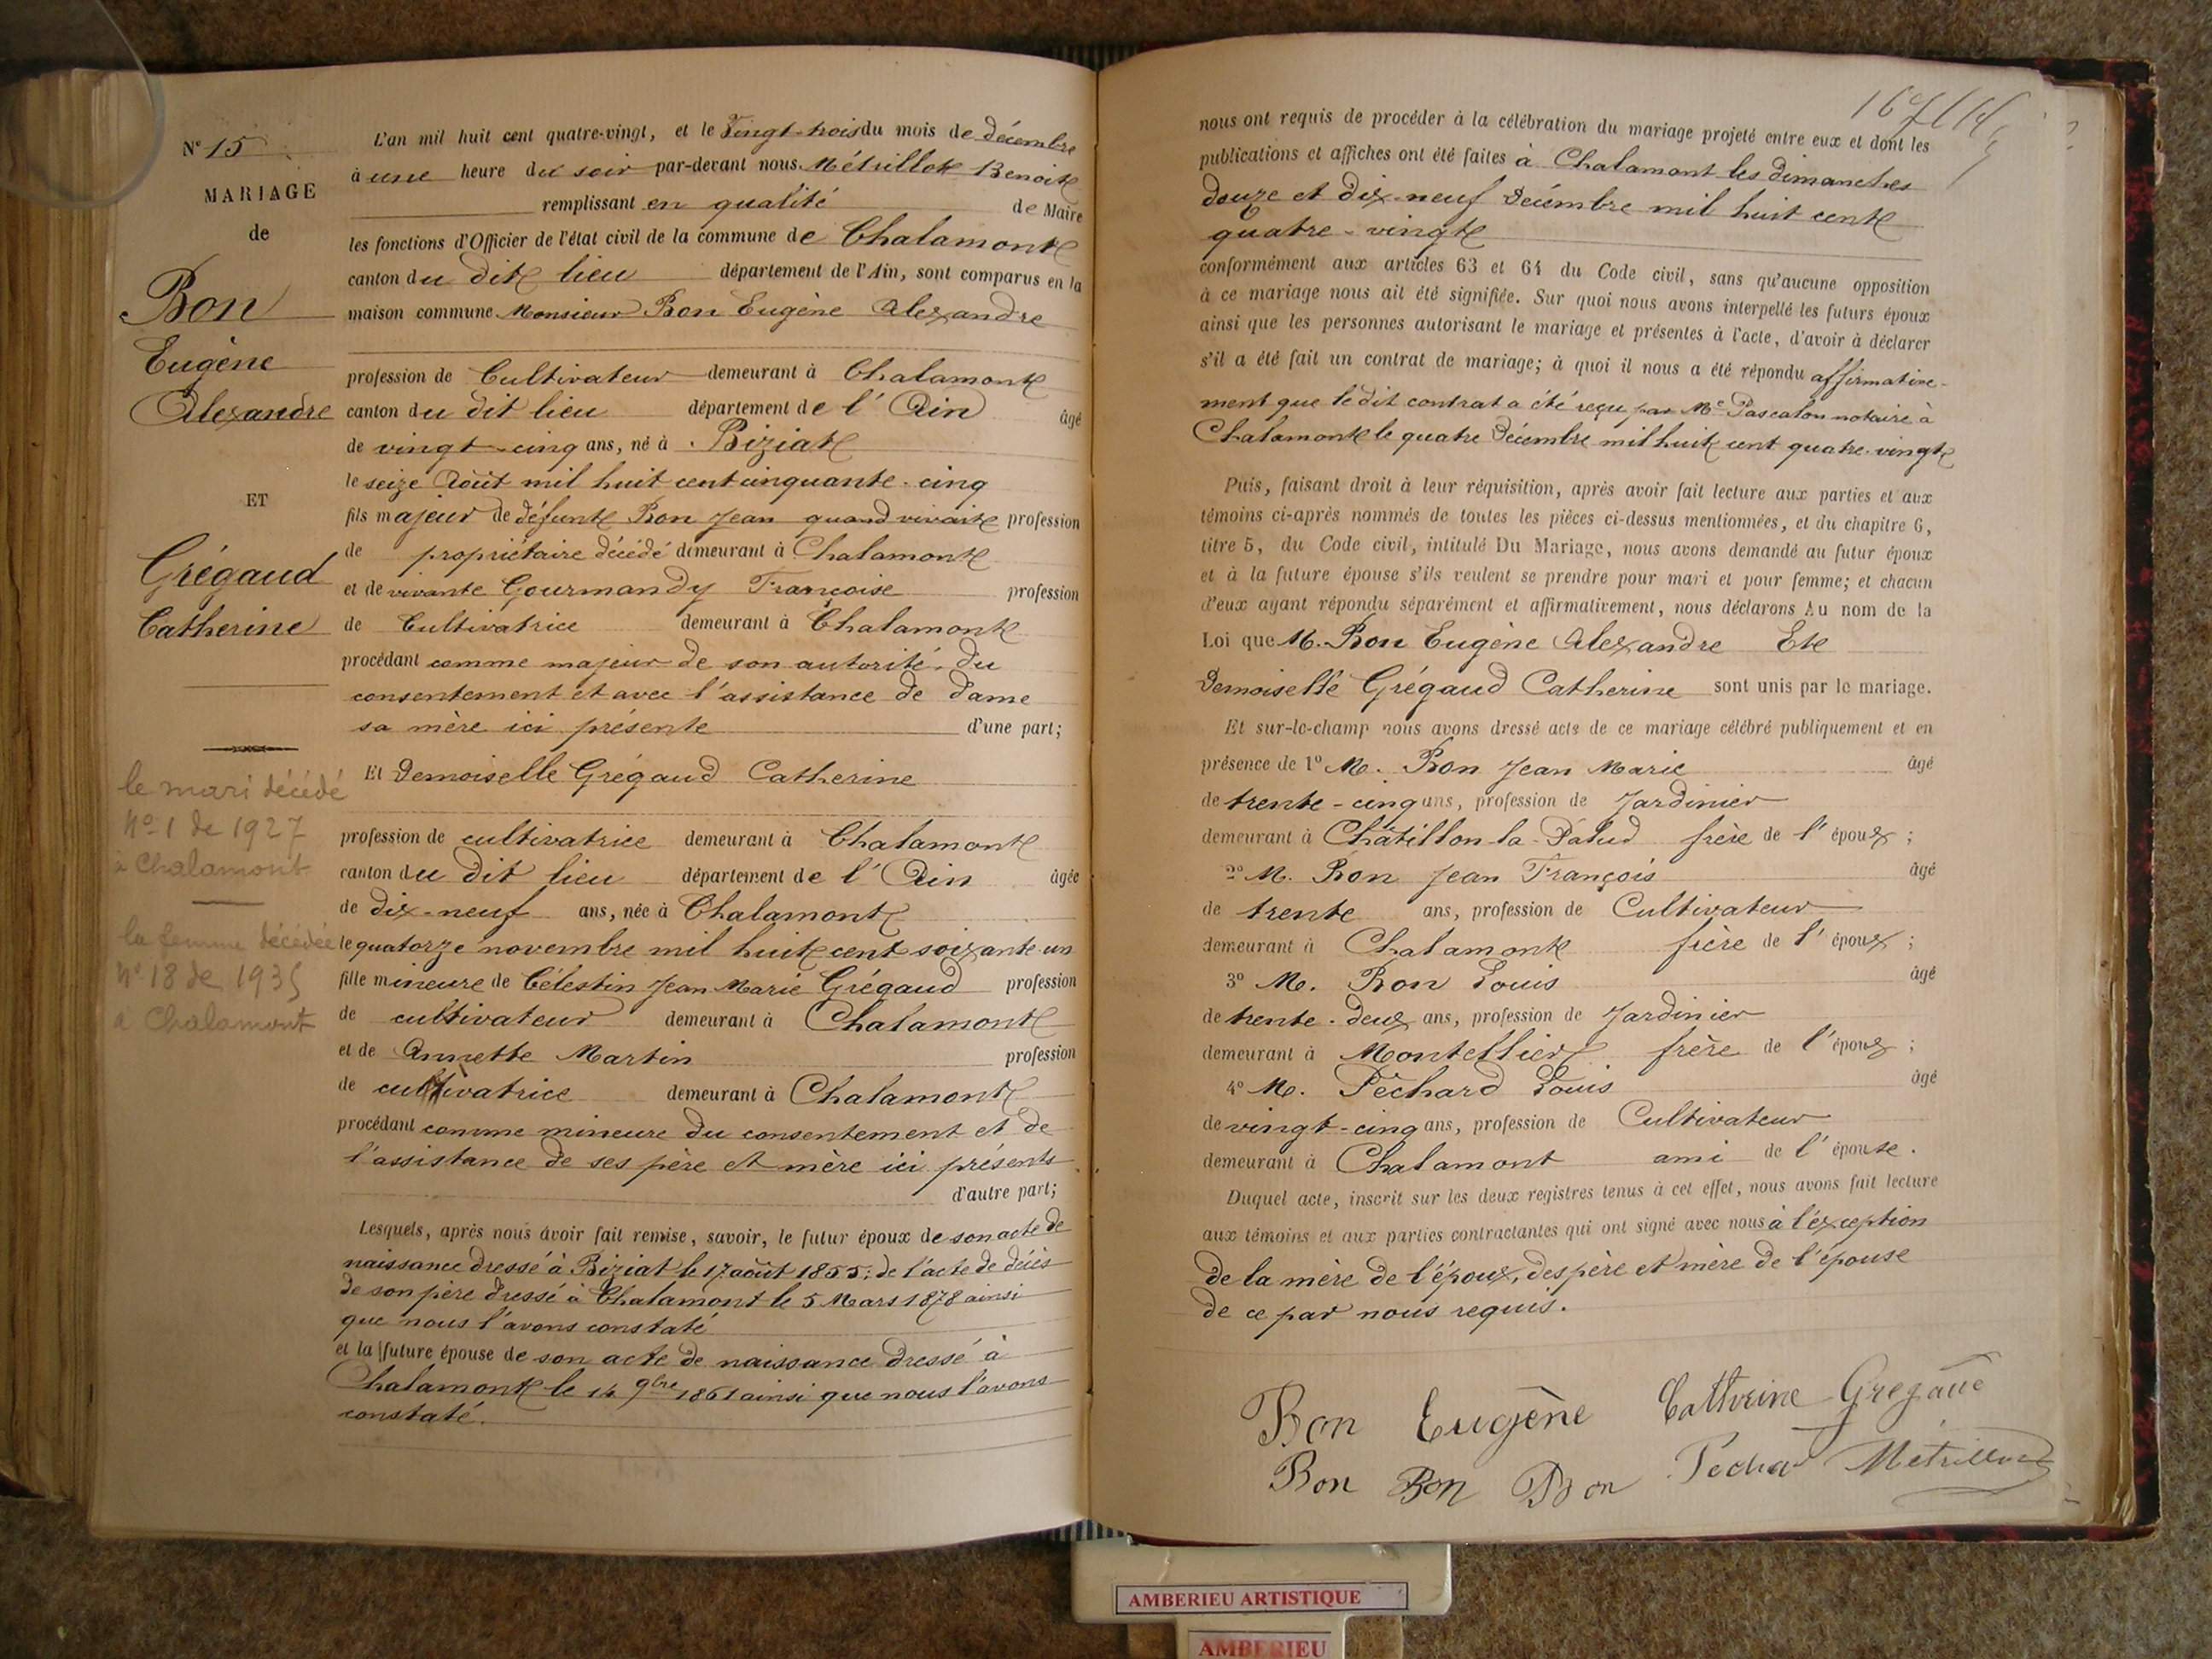 N° 15
MARIAGE
de
Bon
Eugène
Alexandre
ET
Grégaud
Catherine
le mari décédé
N° 1 de 1927
à Chalamont
la femme décédée
N° 18 de 1935
à Chalamont
L'an mil huit cent quatre-vingt, et le vingt-trois du mois de décembre
à une heure du soir par-devant nous Métrillot Benoit
remplissant en qualité de Maire
les fonctions d'Officier de l'état civil de la commune de Chalamont
canton du dit lieu département de l'Ain, sont comparus en la
maison commune Monsieur Bon Eugène Alexandre
profession de Cultivateur demeurant à Chalamont
canton du dit lieu département de l'Ain âgé
de vingt-cinq ans, né à Biziat
le seize Août mil huit cent cinquante-cinq
fils majeur de défunt Bon Jean quand vivait profession
de propriétaire décédé demeurant à Chalamont
et de vivante Gourmandy Françoise profession
de Cultivatrice demeurant à Chalamont
procédant comme majeur de son autorité, du
consentement et avec l'assistance de dame
sa mère ici présente d'une part;
Et Demoiselle Grégaud Catherine
profession de cultivatrice demeurant à Chalamont
canton du dit lieu département de l'Ain âgée
de dix-neuf ans, née à Chalamont
le quatorze novembre mil huit cent soixante-un
fille mineure de Célestin Jean Marie Grégaud profession
de cultivateur demeurant à Chalamont
et de Annette Martin profession
de cultivatrice demeurant à Chalamont
procédant comme mineure du consentement et de
l'assistance de ses père et mère ici présents
d'autre part;
Lesquels, après nous avoir fait remise, savoir, le futur époux de son acte de
naissance dressé à Biziat le 17 août 1855; de l'acte de décès
de son père dressé à Chalamont le 5 Mars 1878 ainsi
que nous l'avons constaté
et la future épouse de son acte de naissance dressé à
Chalamont le 14 9bre 1861 ainsi que nous l'avons
constaté.
nous ont requis de procéder à la célébration du mariage projeté entre eux et dont les
publications et affiches ont été faites à Chalamont les dimanches
douze et dix-neuf Décembre mil huit cent
quatre-vingt
conformément aux articles 63 et 64 du Code civil, sans qu'aucune opposition
à ce mariage nous ait été signifiée. Sur quoi nous avons interpellé les futurs époux
ainsi que les personnes autorisant le mariage et présentes à l'acte, d'avoir à déclarer
s'il a été fait un contrat de mariage; à quoi il nous a été répondu affirmative-
ment que le dit contrat a été reçu par Me Pascalon notaire à
Chalamont le quatre Décembre mil huit cent quatre-vingt
Puis, faisant droit à leur réquisition, après avoir fait lecture aux parties et aux
témoins ci-après nommés de toutes les pièces ci-dessus mentionnées, et du chapitre 6,
titre 5, du Code civil, intitulé Du Mariage, nous avons demandé au futur époux
et à la future épouse s'ils veulent se prendre pour mari et pour femme; et chacun
d'eux ayant répondu séparément et affirmativement, nous déclarons Au nom de la
Loi que M. Bon Eugène Alexandre Et
Demoiselle Grégaud Catherine sont unis par le mariage.
Et sur-le-champ nous avons dressé acte de ce mariage célébré publiquement et en
présence de 1° M. Bon Jean Marie âgé
de trente-cinq ans, profession de Jardinier
demeurant à Châtillon-la-Palud frère de l'époux;
2° M. Bon Jean François âgé
de trente ans, profession de Cultivateur
demeurant à Chalamont frère de l'époux;
3° M. Bon Louis âgé
de trente-deux ans, profession de Jardinier
demeurant à Montellier frère de l'époux;
4° M. Péchard Louis âgé
de vingt-cinq ans, profession de Cultivateur
demeurant à Chalamont ami de l'épouse.
Duquel acte, inscrit sur les deux registres tenus à cet effet, nous avons fait lecture
aux témoins et aux parties contractantes qui ont signé avec nous à l'exception
de la mère de l'époux, des père et mère de l'épouse
de ce par nous requis.
Bon Eugène Catherine Gregaud
Bon Bon Bon Péchar Métrillot
AMBERIEU ARTISTIQUE
AMBERIEU